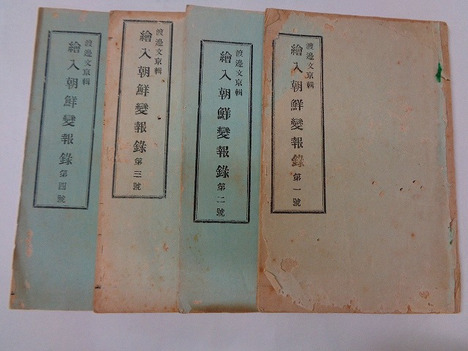 渡邊文京輯
繪入朝鮮變報錄 第一號
渡邊文京輯
繪入朝鮮變報錄 第二號
渡邊文京輯
繪入朝鮮變報錄 第三號
渡邊文京輯
繪入朝鮮變報錄 第四號